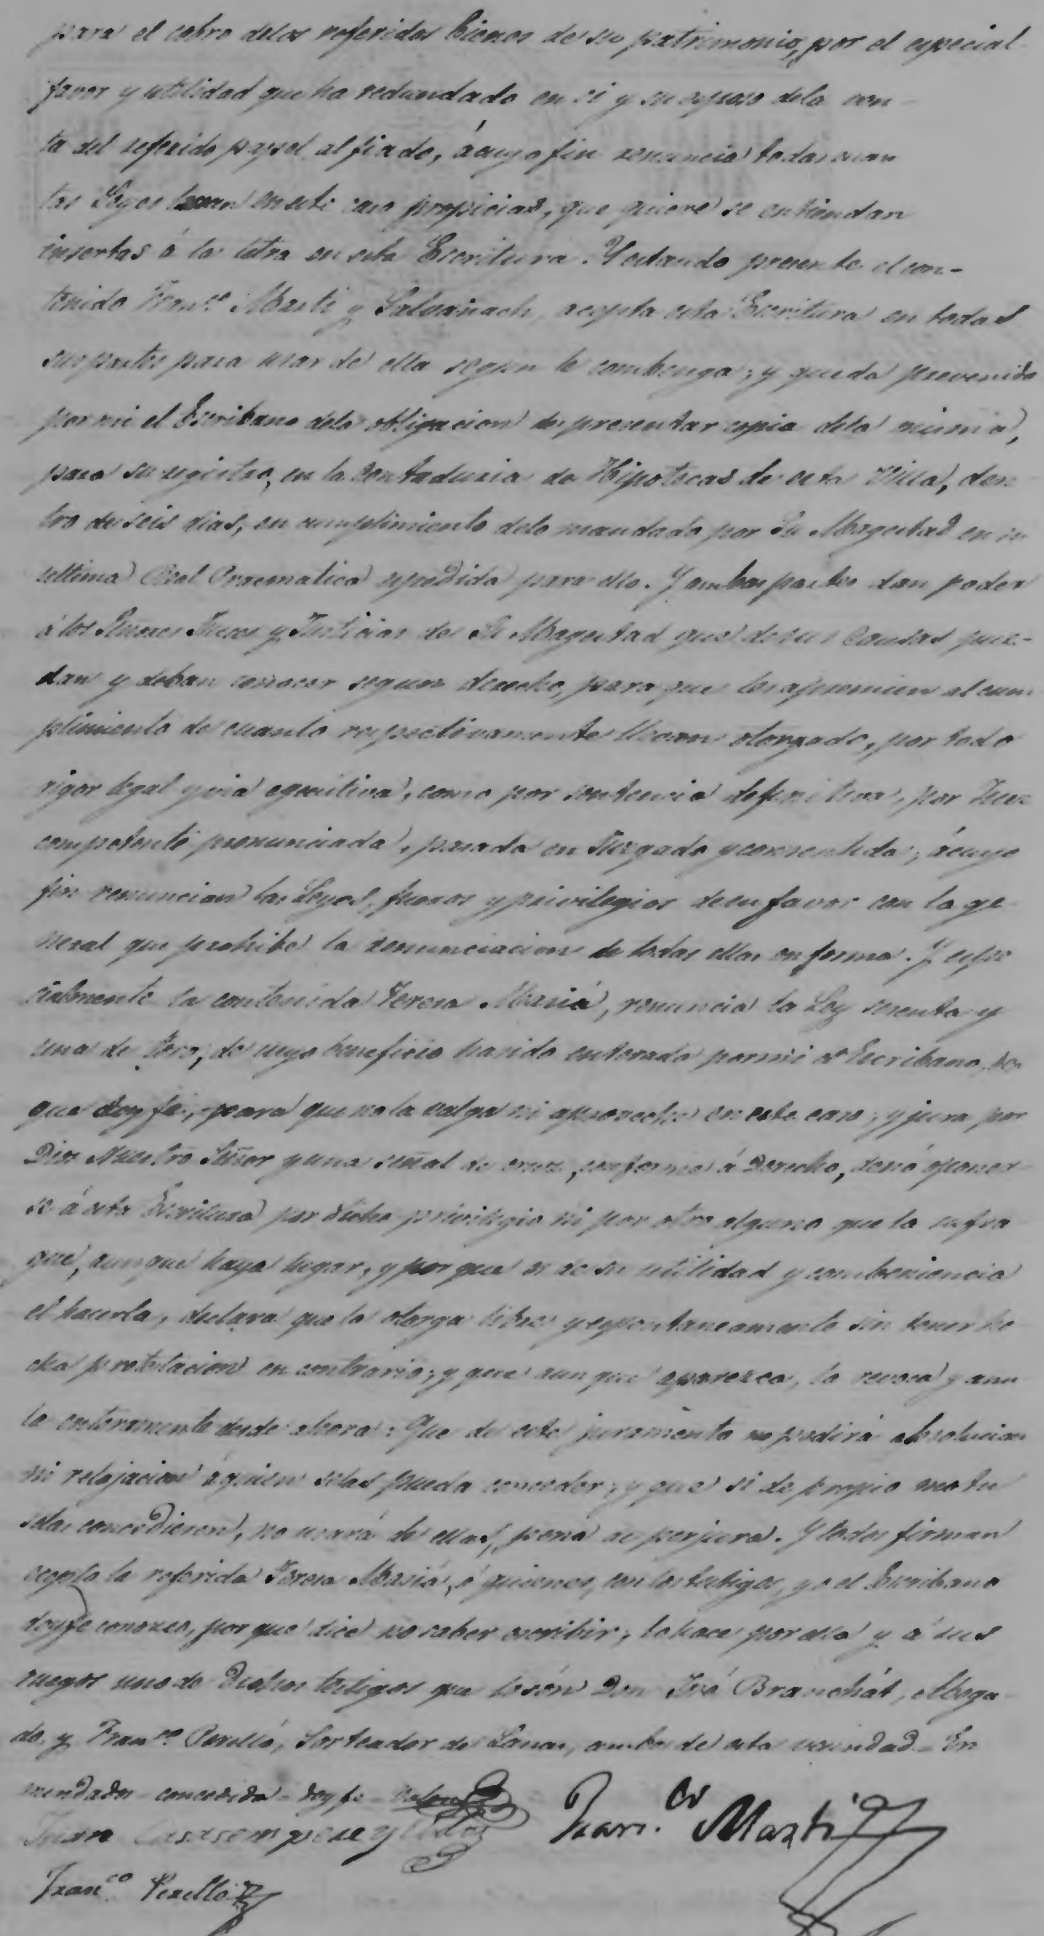 para el cobro delos referidos bienes de su patrimonio, por el especial
favor y utilidad que ha redundado en si y su esposo dela ven-
ta del referido papel al fiado, á cuyo fin renuncia todas cuan
tas Leyes sean en este caso propicias, que quiere se entiendan
insertas á la letra en esta Escritura. Y estando presente el con-
tenido Fran.co Marti y acepta esta Escritura en todas
sus partes para usar de ella segun le combenga; y queda prevenido
por mi el Escribano dela obligacion de presentar copia dela misma,
para su registro, en la Contaduria de Hipotecas de esta Villa, den
tro de seis dias, en cumplimiento delo mandado por Su Magestad en su
ultima Real Pracmatica expedida para ello. Y ambas partes dan poder
á los Señores Jueces y Justicias de Su Magestad que de sus causas pue-
dan y deban conocer segun derecho, para que los apremien al cum
plimiento de cuanto respectivamente llevan otorgado, por todo
rigor legal y via egecutiva, como por sentencia definitiva, por Juez
competente pronunciada, pasada en Juzgado y consentida; á cuyo
fin renuncian las Leyes, fueros y privilegios de su favor con la ge-
neral que prohibe la renunciacion de todas ellas en forma. Y espe
cialmente la contenida Teresa Masiá, renuncia la Ley sesenta y
una de Toro, de cuyo beneficio ha sido enterada por mi el Escribano, de
que doy fé, para que no la valga ni aproveche en este caso; y jura por
Dios Nuestro Señor y una señal de cruz, conforme á Derecho, de no oponer-
se á esta Escritura por dicho privilegio ni por otro alguno que la sufra
gue, aunque haya lugar; y por que es de su utilidad y combeniencia
el hacerla, declara que la otorga libre y espontaneamente sin tener he
cha protestacion en contrario; y que aun que aparezca, la revoca y anu
la enteramente desde ahora. Que de este juramento no pedirá absolucion
ni relajacion á quien selas pueda conceder; y que si de propio motu
selas concedieren, no usará de ellas, pena de perjura. Y todos firman
ecepto la referida Teresa Masiá, á quienes, con los testigos, yo el Escribano
doy fe conozco, por que dice no saber escribir, lo hace por ella y á sus
ruegos uno de Dichos testigos que lo són Don José Branchát, Aboga-
do, y Fran.co Perelló, Sorteador de Lanas, ambos de esta vecindad. En
mendado - concedida - doy fe
Juan Casasempere y Fran.co Marti
Fran.co Perelló